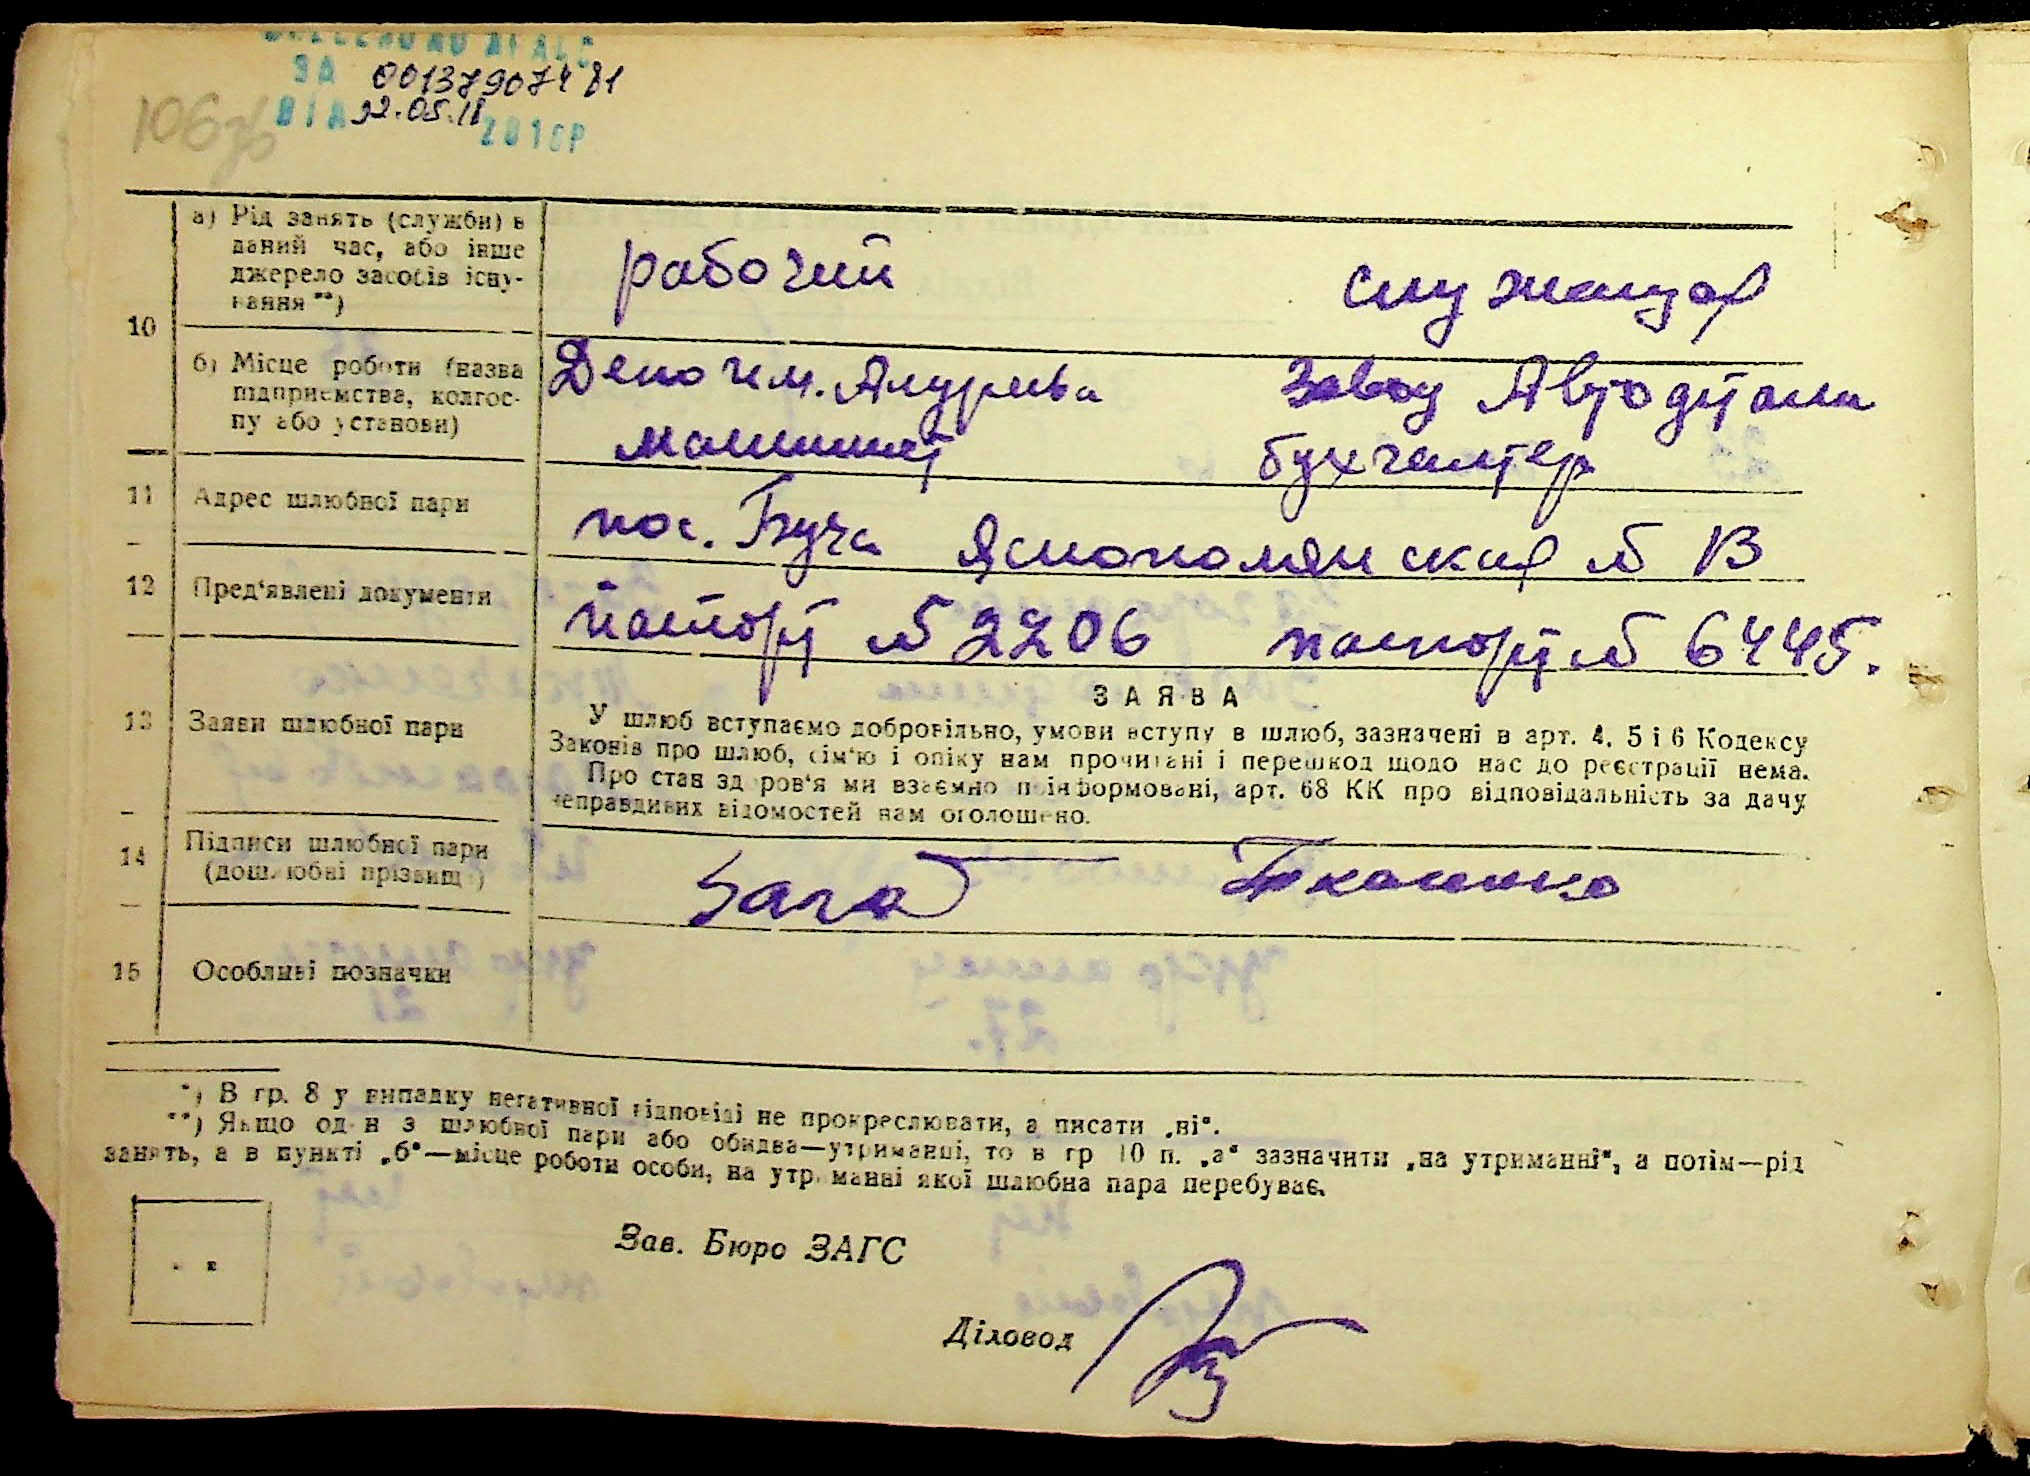 ВНЕСЕНО ДО ДРАЦС
ЗА 00137907481
ВІД 22.05.18 201 8Р
106зв
10
а) Рід занять (служби) в
даний час, або інше
джерело засобів існу-
вання **)
рабочий служащая
б) Місце роботи (назва
підприємства, колгос-
пу або установи)
Депо им. Андреева завод Автодетали
машинист бухгалтер
11 Адрес шлюбної пари
пос. Буча Яснополянская № 13
12 Пред'явлені документи
паспорт № 2206 паспорт № 6445.
13 Заяви шлюбної пари
ЗАЯВА
У шлюб вступаємо добровільно, умови вступу в шлюб, зазначені в арт. 4, 5 і 6 Кодексу
Законів про шлюб, сім'ю і опіку нам прочитані і перешкод щодо нас до реєстрації нема.
Про стан здоров'я ми взаємно поінформовані, арт. 68 КК про відповідальність за дачу
неправдивих відомостей нам оголошено.
14 Підписи шлюбної пари
(дошлюбні прізвища)
Ткаченко
15 Особливі позначки
*) В гр. 8 у випадку негативної відповіді не прокреслювати, а писати „ні".
**) Якщо один з шлюбної пари або обидва—утриманці, то в гр 10 п. „а" зазначити „на утриманні", а потім—рід
занять, а в пункті „б"—місце роботи особи, на утриманні якої шлюбна пара перебуває.
Зав. Бюро ЗАГС
Діловод